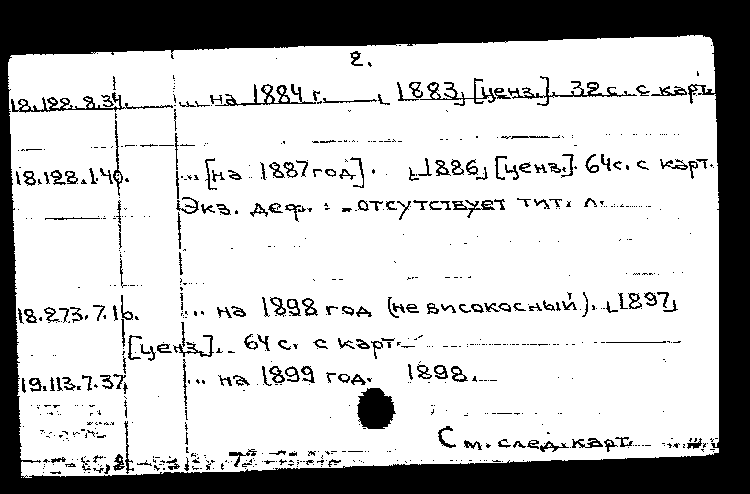 2.
18.122.8.34. ... на 1884 г. [1883] [ценз.]. 32 с. с карт.
18.128.1.40. ... [на 1887 год]. [1886] [ценз.]. 64 с. с карт.
Экз. деф.: отсутствует тит. л.
18.273.7.1б. ... на 1898 год (не високосный). [1897]
[ценз.]. 64 с. с карт.
19.113.7.37. ... на 1899 год. 1898.
См. след. карт.